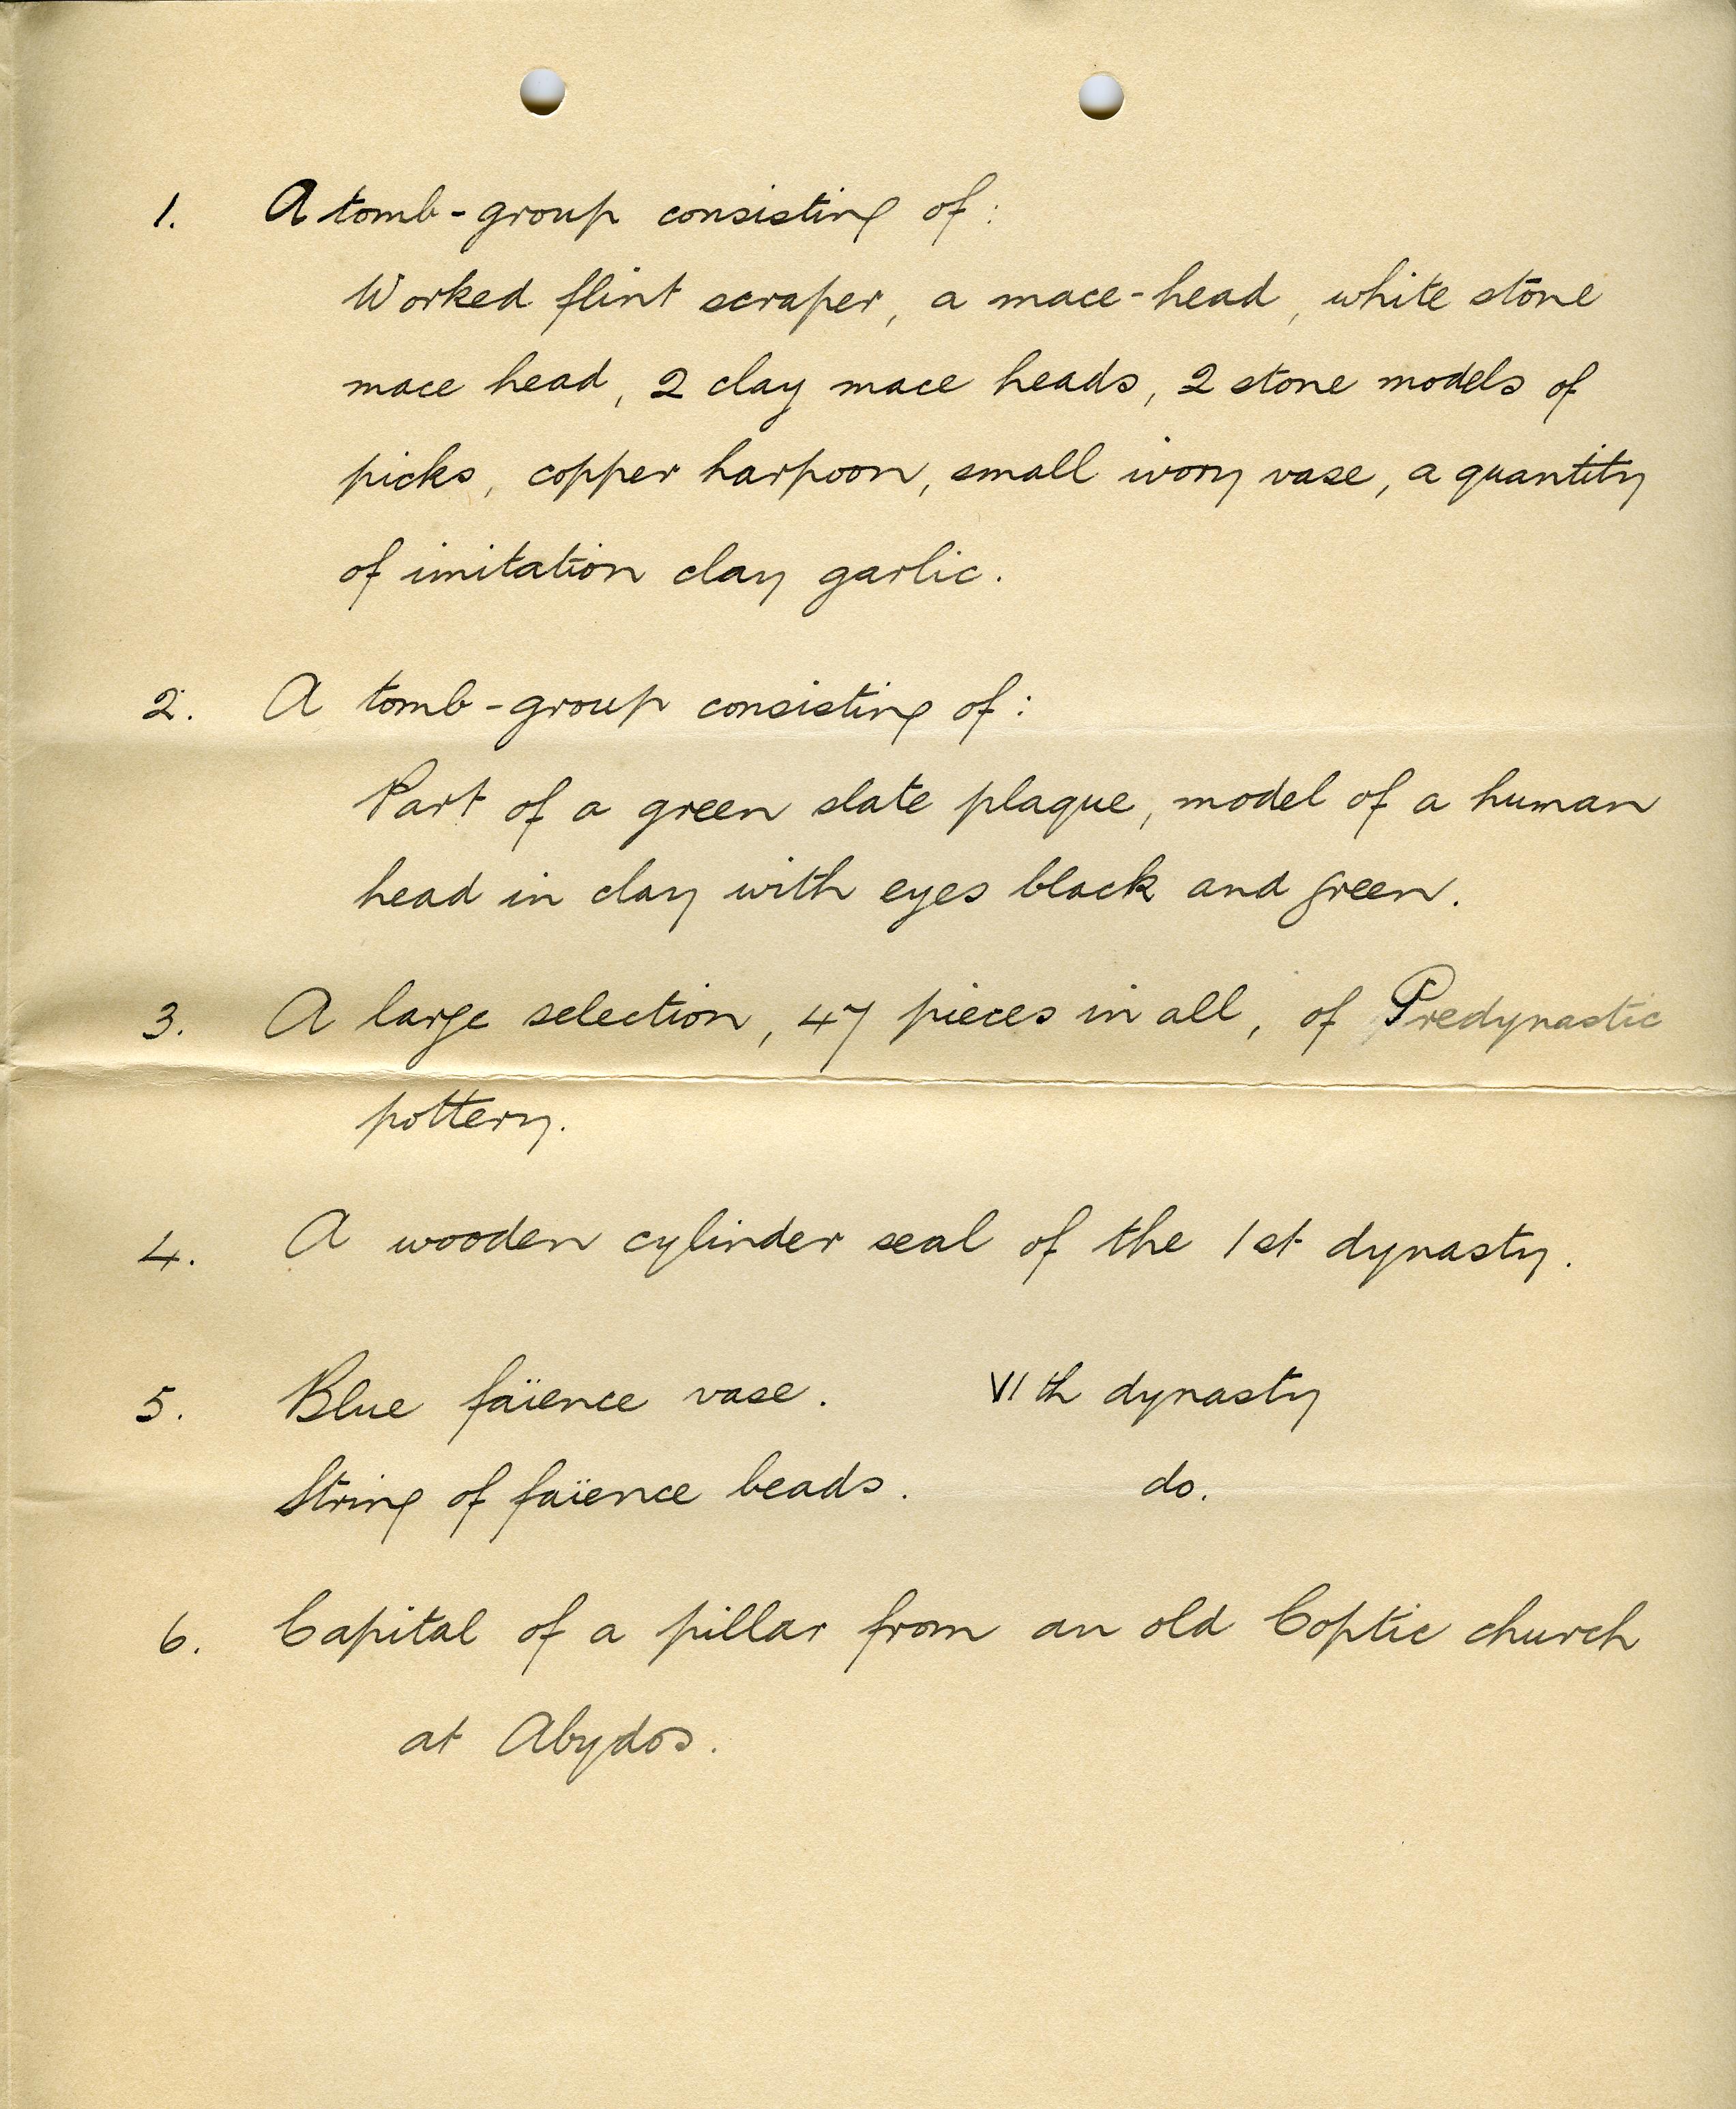 1. A tomb-group consisting of:
Worked flint scraper, a mace-head, white stone
mace head, 2 clay mace heads, 2 stone models of
picks, copper harpoon, small ivory vase, a quantity
of imitation clay garlic.
2. A tomb-group consisting of:
Part of a green slate plaque, model of a human
head in clay with eyes black and green.
3. A large selection, 47 pieces in all, of Predynastic
pottery.
4. A wooden cylinder seal of the 1st dynasty.
5. Blue faïence vase. VIth dynasty
String of faïence beads. do.
6. Capital of a pillar from an old Coptic church
at Abydos.